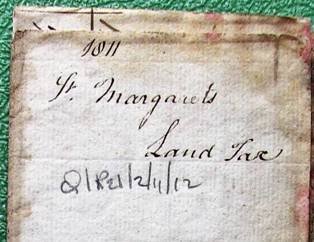 1811
St. Margarets
Land Tax
Q/Rel/2/11/12